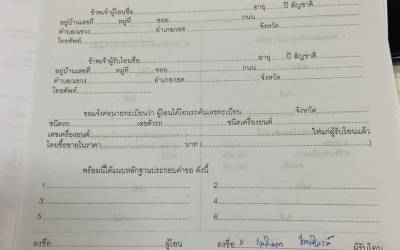 ข้าพเจ้าผู้โอนชื่อ........อายุ........ปี สัญชาติ........
อยู่บ้านเลขที่........หมู่ที่........ซอย........ถนน........
ตำบล/แขวง........อำเภอ/เขต........จังหวัด........
โทรศัพท์........
ข้าพเจ้าผู้รับโอนชื่อ........อายุ........ปี สัญชาติ........
อยู่บ้านเลขที่........หมู่ที่........ซอย........ถนน........
ตำบล/แขวง........อำเภอ/เขต........จังหวัด........
โทรศัพท์........
ขอแจ้งต่อนายทะเบียนว่า ผู้โอนได้โอนรถคันเลขทะเบียน........จังหวัด........
ชนิดรถ........เลขตัวรถ........ชนิดเครื่องยนต์........
เลขเครื่องยนต์........ให้แก่ผู้รับโอนแล้ว
โดยซื้อขายในราคา........บาท (........)
พร้อมนี้ได้แนบหลักฐานประกอบคำขอ ดังนี้
1........ 2........
3........ 4........
5........ 6........
ลงชื่อ........ผู้โอน ลงชื่อ x ........ผู้รับโอน